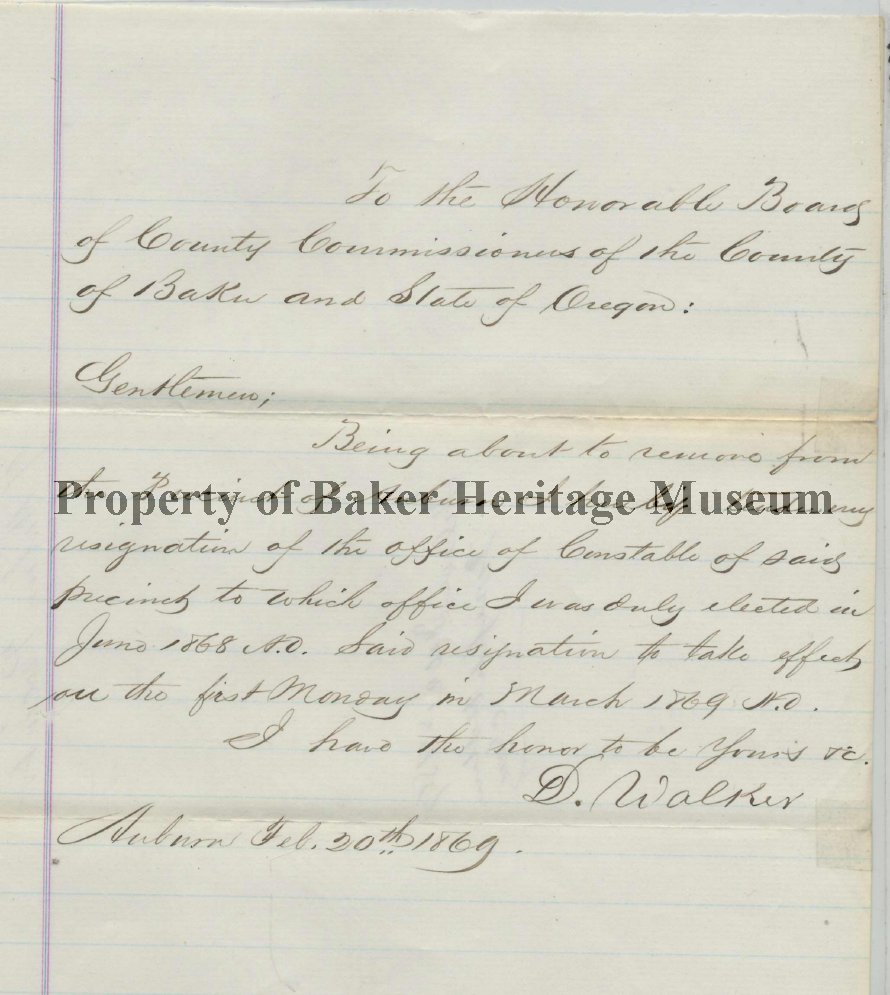 To the Honorable Board
of County Commissioners of the County
of Baker and State of Oregon:
Gentlemen;
Being about to remove from
the Precinct of Auburn I hereby tender my
Property of Baker Heritage Museum
resignation of the office of Constable of said
precinct to which office I was duly elected in
June 1868 A.D. Said resignation to take effect
on the first Monday in March 1869 A.D.
I have the honor to be Yours &c.
D. Walker
Auburn Feb. 20th 1869.